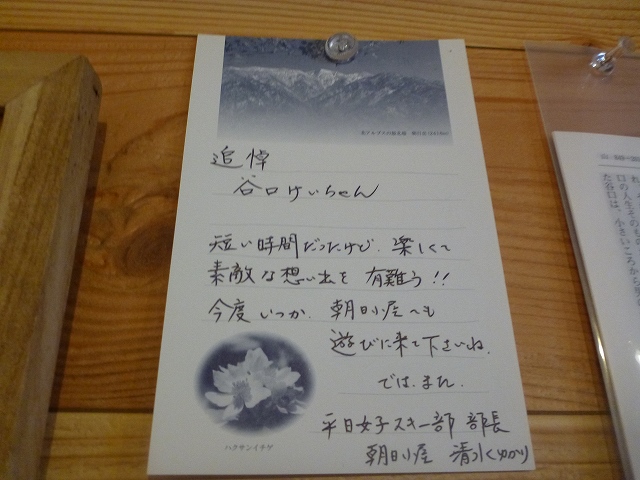 追悼
谷口けいちゃん
短い時間だったけど、楽しくて
素敵な想い出を 有難う!!
今度いつか、朝日小屋へも
遊びに来て下さいね。
では、また。
平日女子スキー部 部長
朝日小屋 清水ゆかり
ハクサンイチゲ
た谷口は、小さいころから